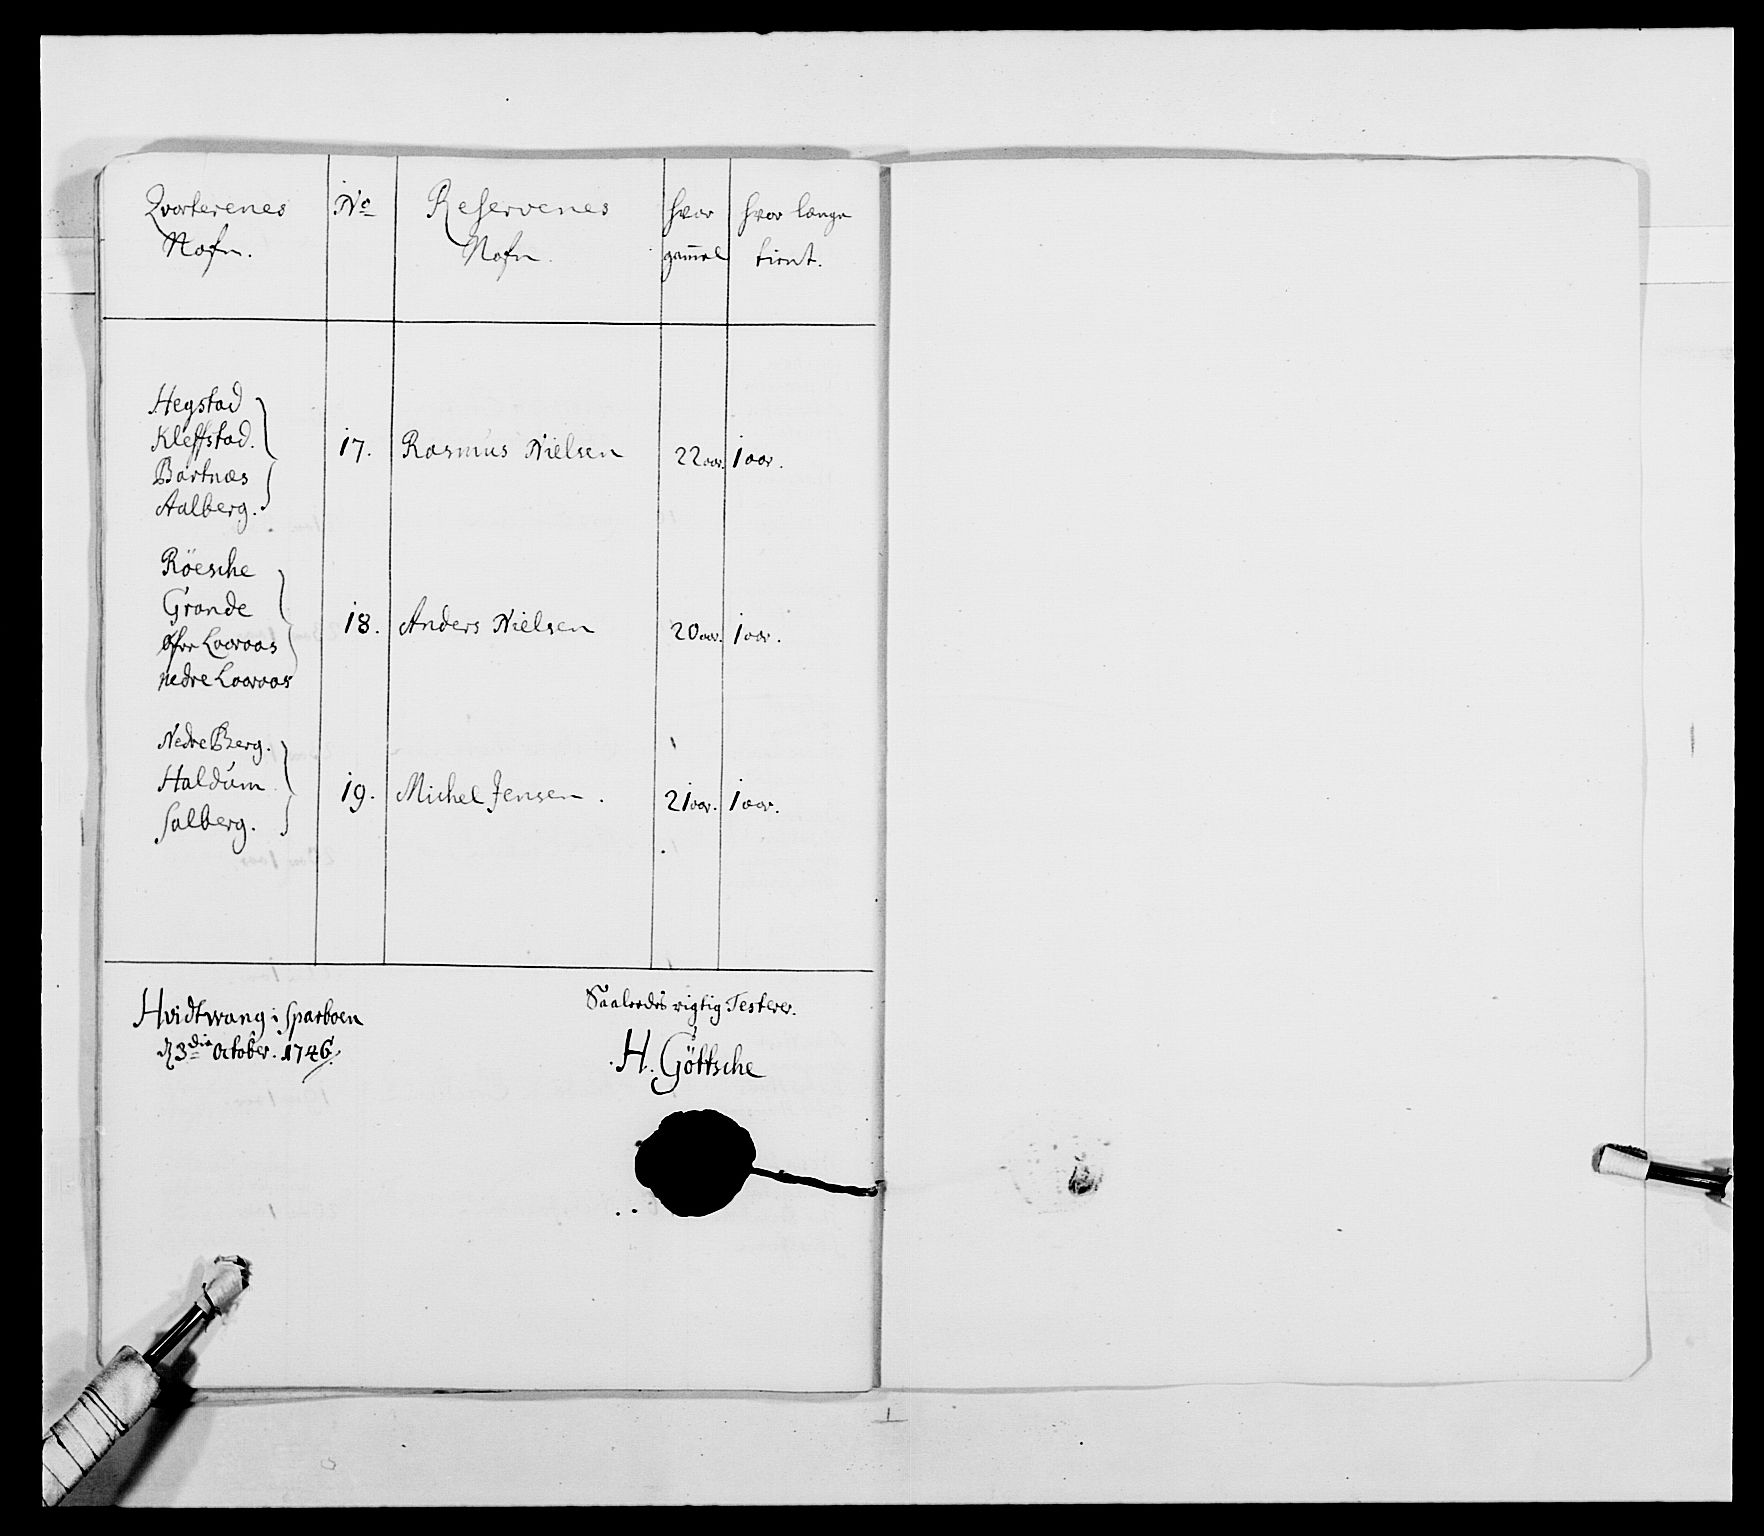 Qvarterenes Nafn.
No
Reservenes Nafn.
hvor gam̄el
hvor længe tient.
Hegstad
Kleffstad.
Bartnæs
Aalberg.
17.
Rasmus Nielsen
22 aar.
1 aar.
Röesche
Grande
øfre Laaraas
nedre Laaraas
18.
Anders Nielsen
20 aar.
1 aar.
Nedre Berg.
Haldum
Salberg.
19.
Michel Jensen.
21 aar.
1 aar.
Hvidtwang i Sparboen
d 3die October. 1746.
Saaleedes rigtig Testerer.
H. Göttsche